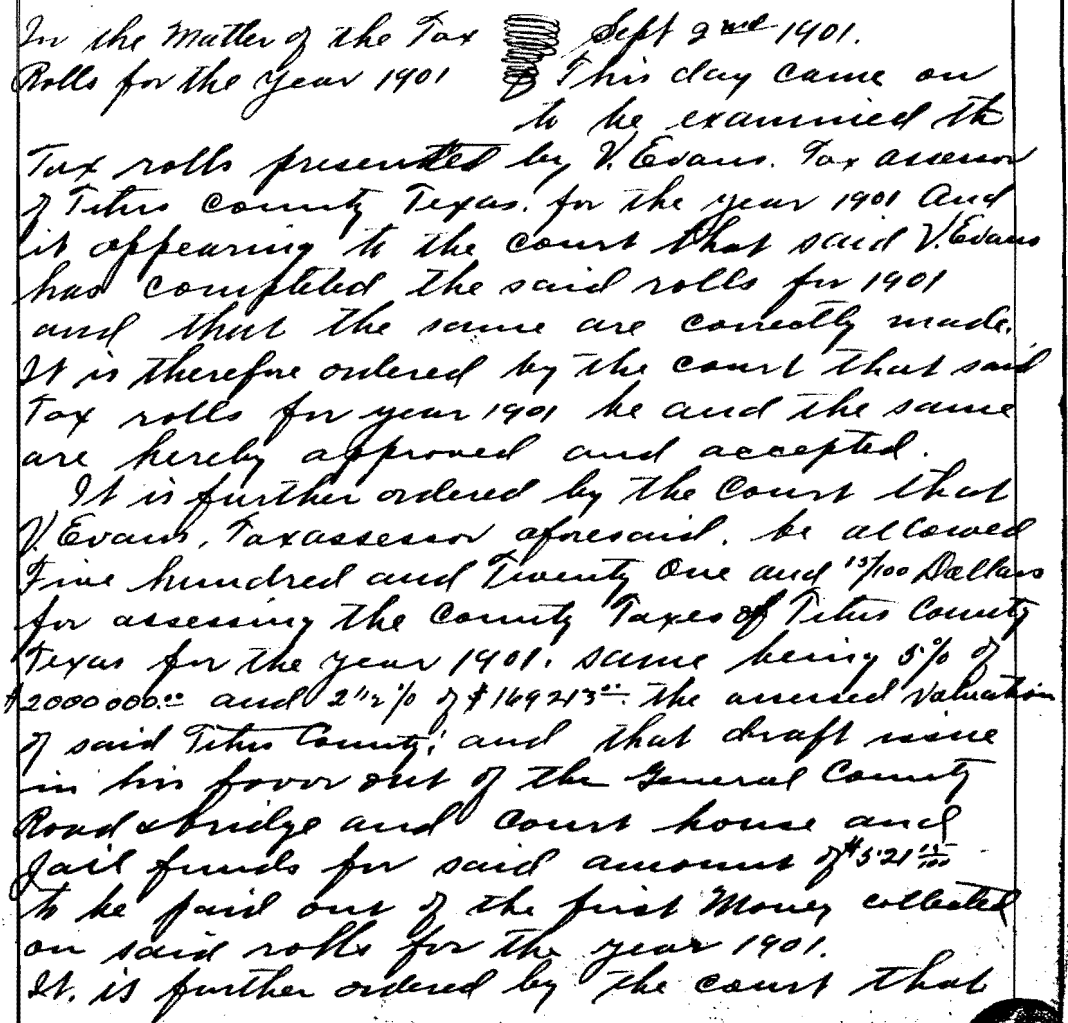 In the Matter of the Tax Sept 2nd 1901.
Rolls for the year 1901 This day came on
to be examined th
Tax rolls presented by V. Evans. Tax assessor
of Titus County Texas. for the year 1901 And
it appearing to the court that said V. Evans
has completed the said rolls for 1901
and that the same are correctly made.
It is therefore ordered by the court that said
Tax rolls for year 1901 be and the same
are hereby approved and accepted.
It is further ordered by the Court that
V. Evans, Taxassessor aforesaid. be allowed
Five hundred and Twenty One and 15/100 Dollars
for assessing the County Taxes of Titus County
Texas for the year 1901. same being 5% of
$2000000.00 and 2 1/2 % of $169213.00 the assessed valuation
of said Titus County; and that draft issue
in his favor out of the General County
Road & bridge and Court house and
Jail funds for said amount of $521 15/100
to be paid out of the first Money collected
on said rolls for the year 1901.
It. is further ordered by the court that